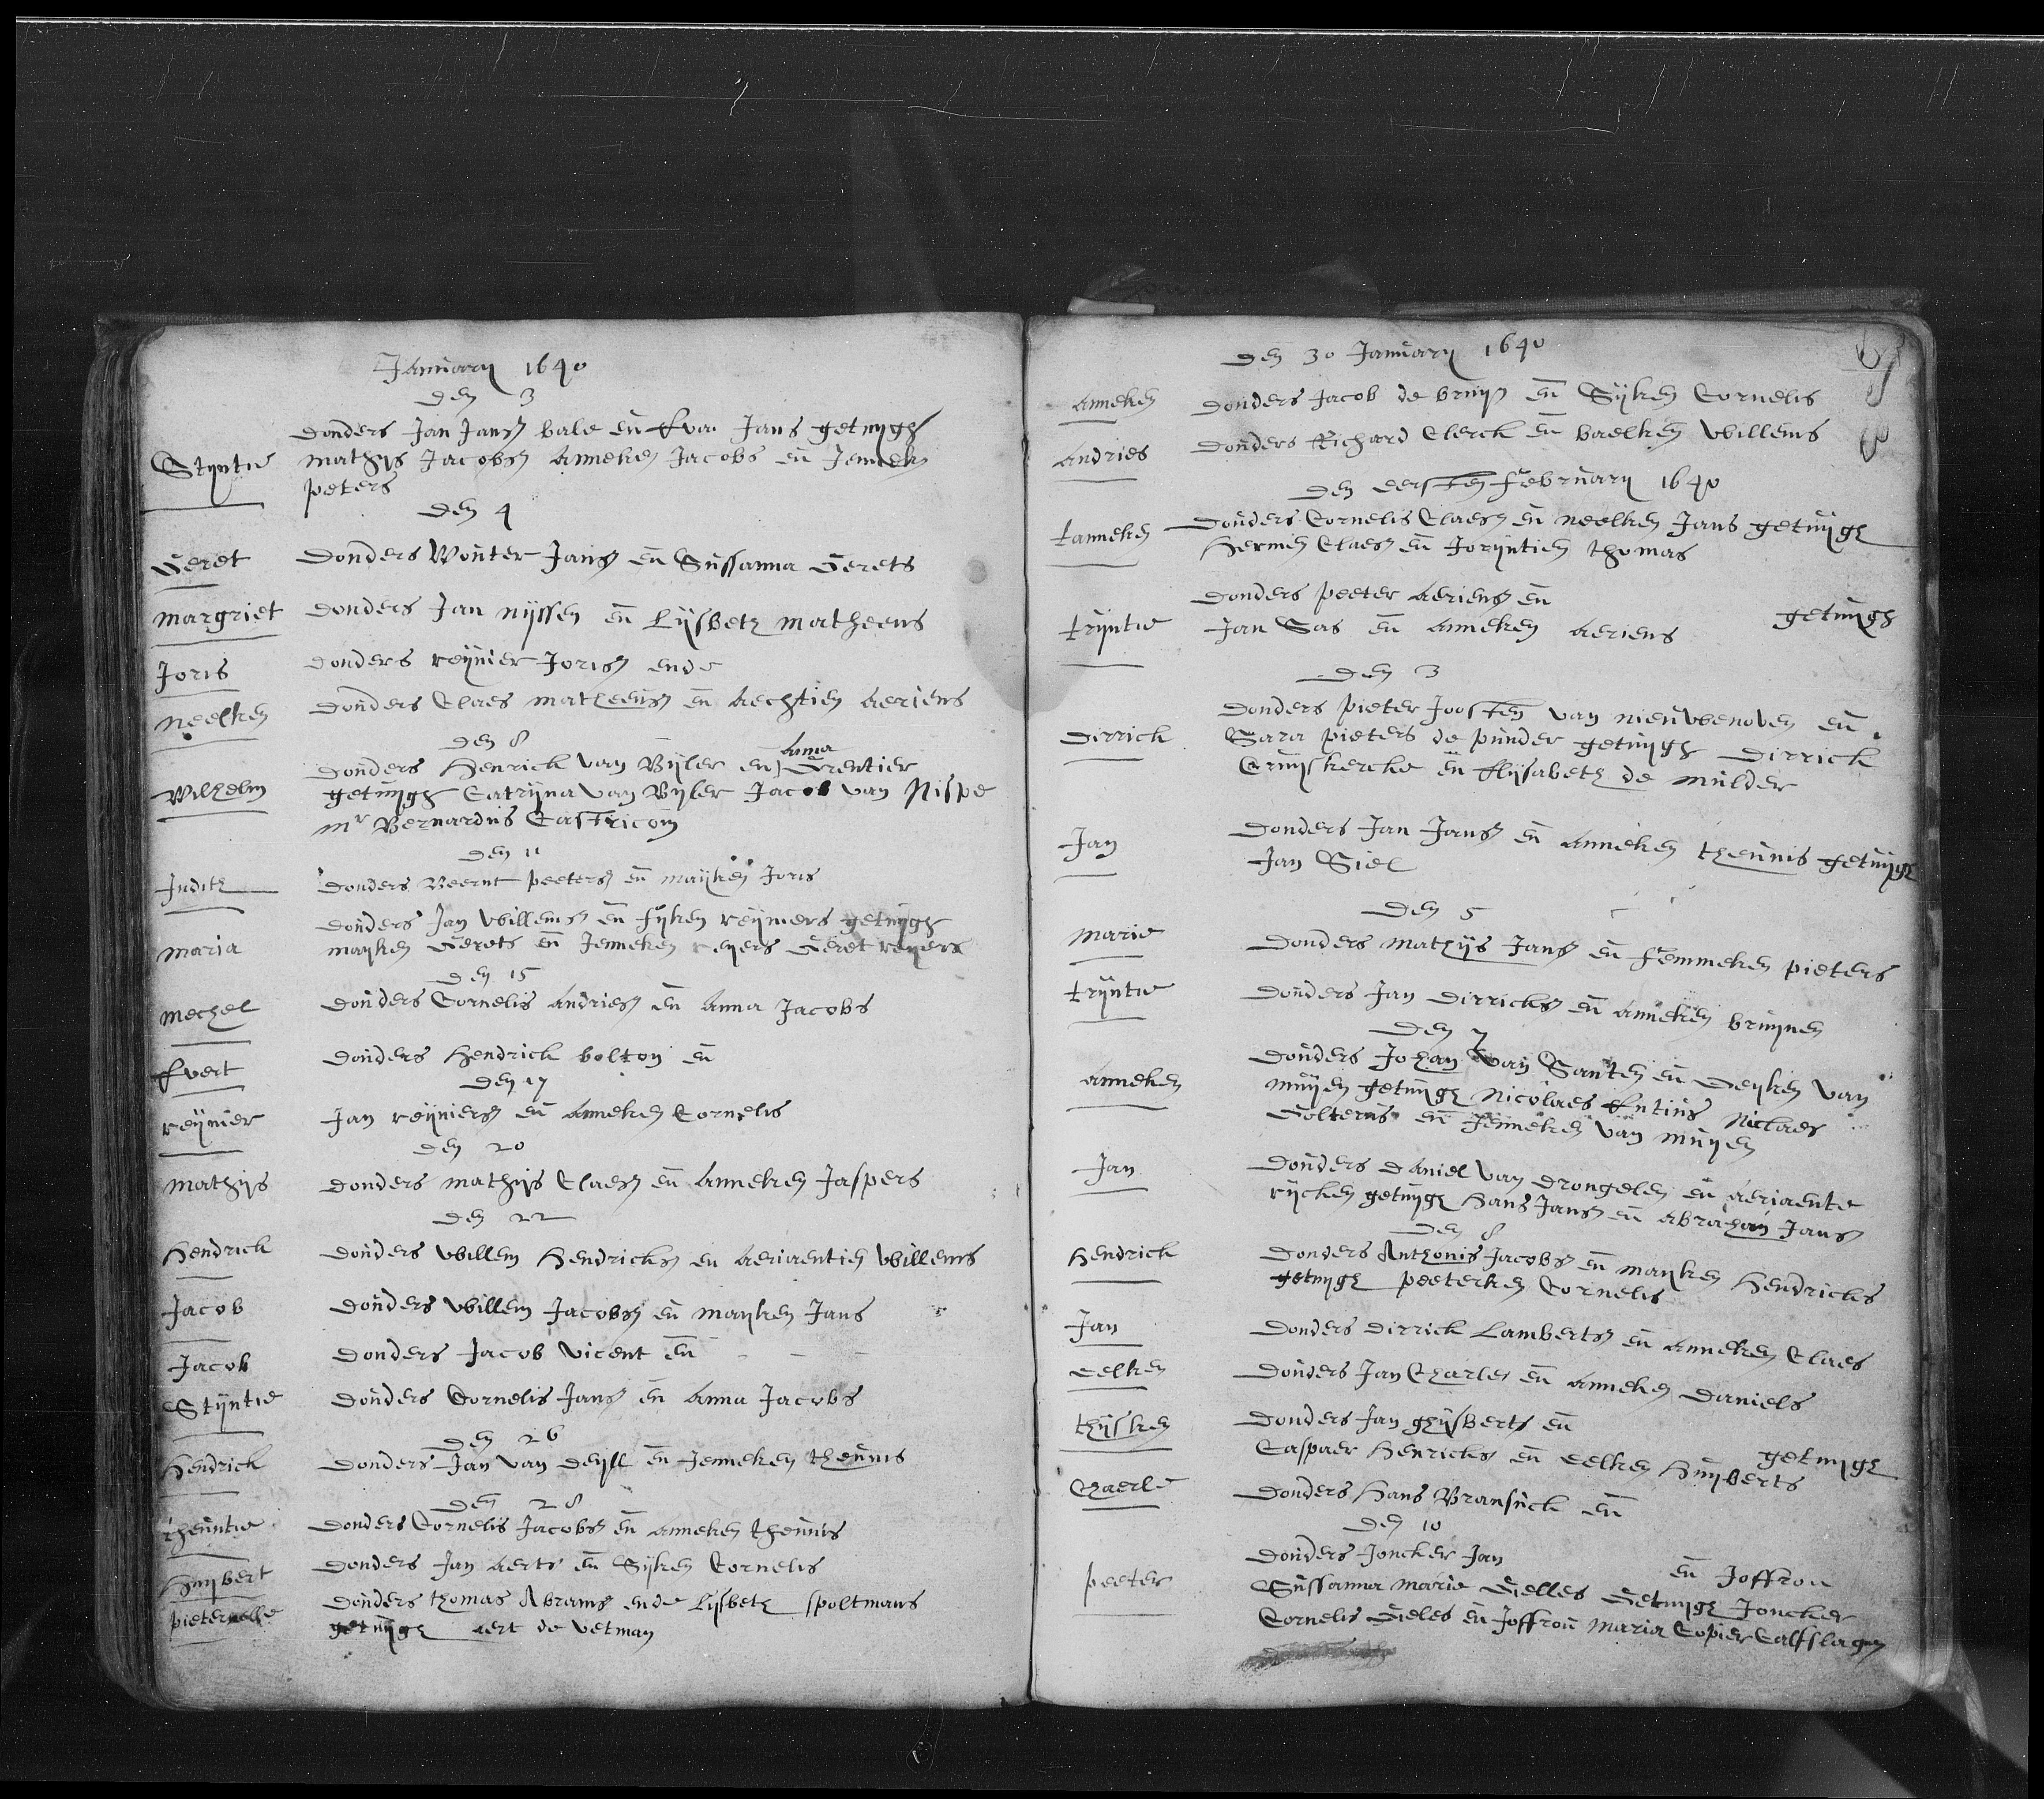 January 1640
den 3
donders Jan Jansz bale en Eva Jans getuijgh
Stijntie mathijs Jacobsz Anneken Jacobs en Jenneken
peters
den 4
Geret donders Wouter Jansz en Sussanna Gerets
margriet donders Jan nijssen en Lijsbeth matheeus
Joris donders reijnier Jorisz ende
neelken donders Claes matheeusz en Aechtien Aeriens
den 8
Anna
donders Henrick van Bijler en Grentier
Wilhelm getuijgh Catrijna van Bijler Jacob van Nispe
mr Bernardus Castricom
den 11
Judith donders Beernt peetersz en maijken Joris
donders Jan Willemsz en fijken reijniers getuijgh
maria mayken Gerets en Jenneken reyers Geret reyers
den 15
mechel donders Cornelis Andriesz en Anna Jacobs
Evert donders Hendrick bolton en
den 17
reijnier Jan reijniersz en Anneken Cornelis
den 20
mathijs donders mathijs Claesz en Anneken Jaspers
den 22
Hendrick donders Willem Hendricksz en Aeriaentien Willems
Jacob donders Willem Jacobsz en mayken Jans
Jacob donders Jacob Vicent en
Stijntie donders Cornelis Jansz en Anna Jacobs
den 26
Hendrick donders Jan van deyll en Jenneken theunis
den 28
theuntie donders Cornelis Jacobsz en Anneken theunis
Huijbert donders Jan Aerts en Sijken Cornelis
pieternelle donders thomas Abrams ende Lijsbeth spoltmans
getuijgh aert de vetman
den 30 January 1640
Anneken donders Jacob de bruijn en Sijken Cornelis
Andries donders Richard Clerck en baelken Willems
den eersten february 1640
tanneken donders Cornelis Claesz en neelken Jans getuijgh
Hermen Claesz en Jorijntien thomas
donders peeter Aeriensz en getuijgh
trijntie Jan Sas en Anneken Aeriens
den 3
donders pieter Joosten van nieuwenoven en
Dirrick Sara pieters de punder getuijgh Dirrick
Cruijskercke en Elijsabeth de mulder
Jan donders Jan Jansz en Anneken theunis getuijgh
Jan Giel
den 5
marie donders mathijs Jansz en femmeken pieters
trijntie donders Jan Dirricksz en Anneken bruijnen
den 7
donders Johan van Santen en Geijken van
Anneken muijen getuijgh Nicolaes Entius Niclaes
Golterus en Jenneken van muijen
Jan donders Daniel van Drongelen en Aeriaentie
rijcken getuijgh Hans Jansz en Abraham Jansz
den 8
Hendrick donders Anthonis Jacobsz en mayken Hendricks
getuijgh peeterken Cornelis
Jan donders Dirrick Lambertsz en Anneken Claes
eelken donders Jan Charles en Anneken Daniels
thijsken donders Jan ghijsberts en getuijgh
Caspaer Henricksz en eelken Huijberts
Chaerle donders Hans Bransuck en
den 10
donders Joncker Jan en Joffrou
peeter Sussanna marie Gielles Getuijgh Joncker
Cornelis Gieles en Joffrou Maria Copier Calfslagen